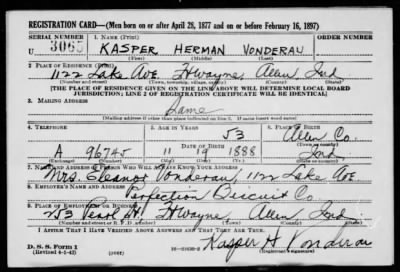 REGISTRATION CARD—(Men born on or after April 28, 1877 and on or before February 16, 1897)
SERIAL NUMBER 1. NAME (Print) ORDER NUMBER
U 3065 KASPER HERMAN VONDERAU
(First) (Middle) (Last)
2. PLACE OF RESIDENCE (Print)
1122 Lake Ave Ft Wayne, Allen Ind
(Number and street) (Town, township, village, or city) (County) (State)
[THE PLACE OF RESIDENCE GIVEN ON THE LINE ABOVE WILL DETERMINE LOCAL BOARD
JURISDICTION; LINE 2 OF REGISTRATION CERTIFICATE WILL BE IDENTICAL]
3. MAILING ADDRESS
Same
(Mailing address if other than place indicated on line 2. If same insert word same)
4. TELEPHONE 5. AGE IN YEARS 6. PLACE OF BIRTH
53 Allen Co.
DATE OF BIRTH (Town or county)
A 96745 11 19 1888 Ind
(Exchange) (Number) (Mo.) (Day) (Yr.) (State or country)
7. NAME AND ADDRESS OF PERSON WHO WILL ALWAYS KNOW YOUR ADDRESS
Mrs. Eleanor Vonderau, 1122 Lake Ave
8. EMPLOYER'S NAME AND ADDRESS
Perfection Biscuit Co.
9. PLACE OF EMPLOYMENT OR BUSINESS
253 Pearl St. Ft Wayne, Allen Ind.
(Number and street or R. F. D. number) (Town) (County) (State)
I AFFIRM THAT I HAVE VERIFIED ABOVE ANSWERS AND THAT THEY ARE TRUE.
Kasper H Vonderau
D. S. S. Form 1
(Revised 4-1-42) (over) (Registrant's signature)